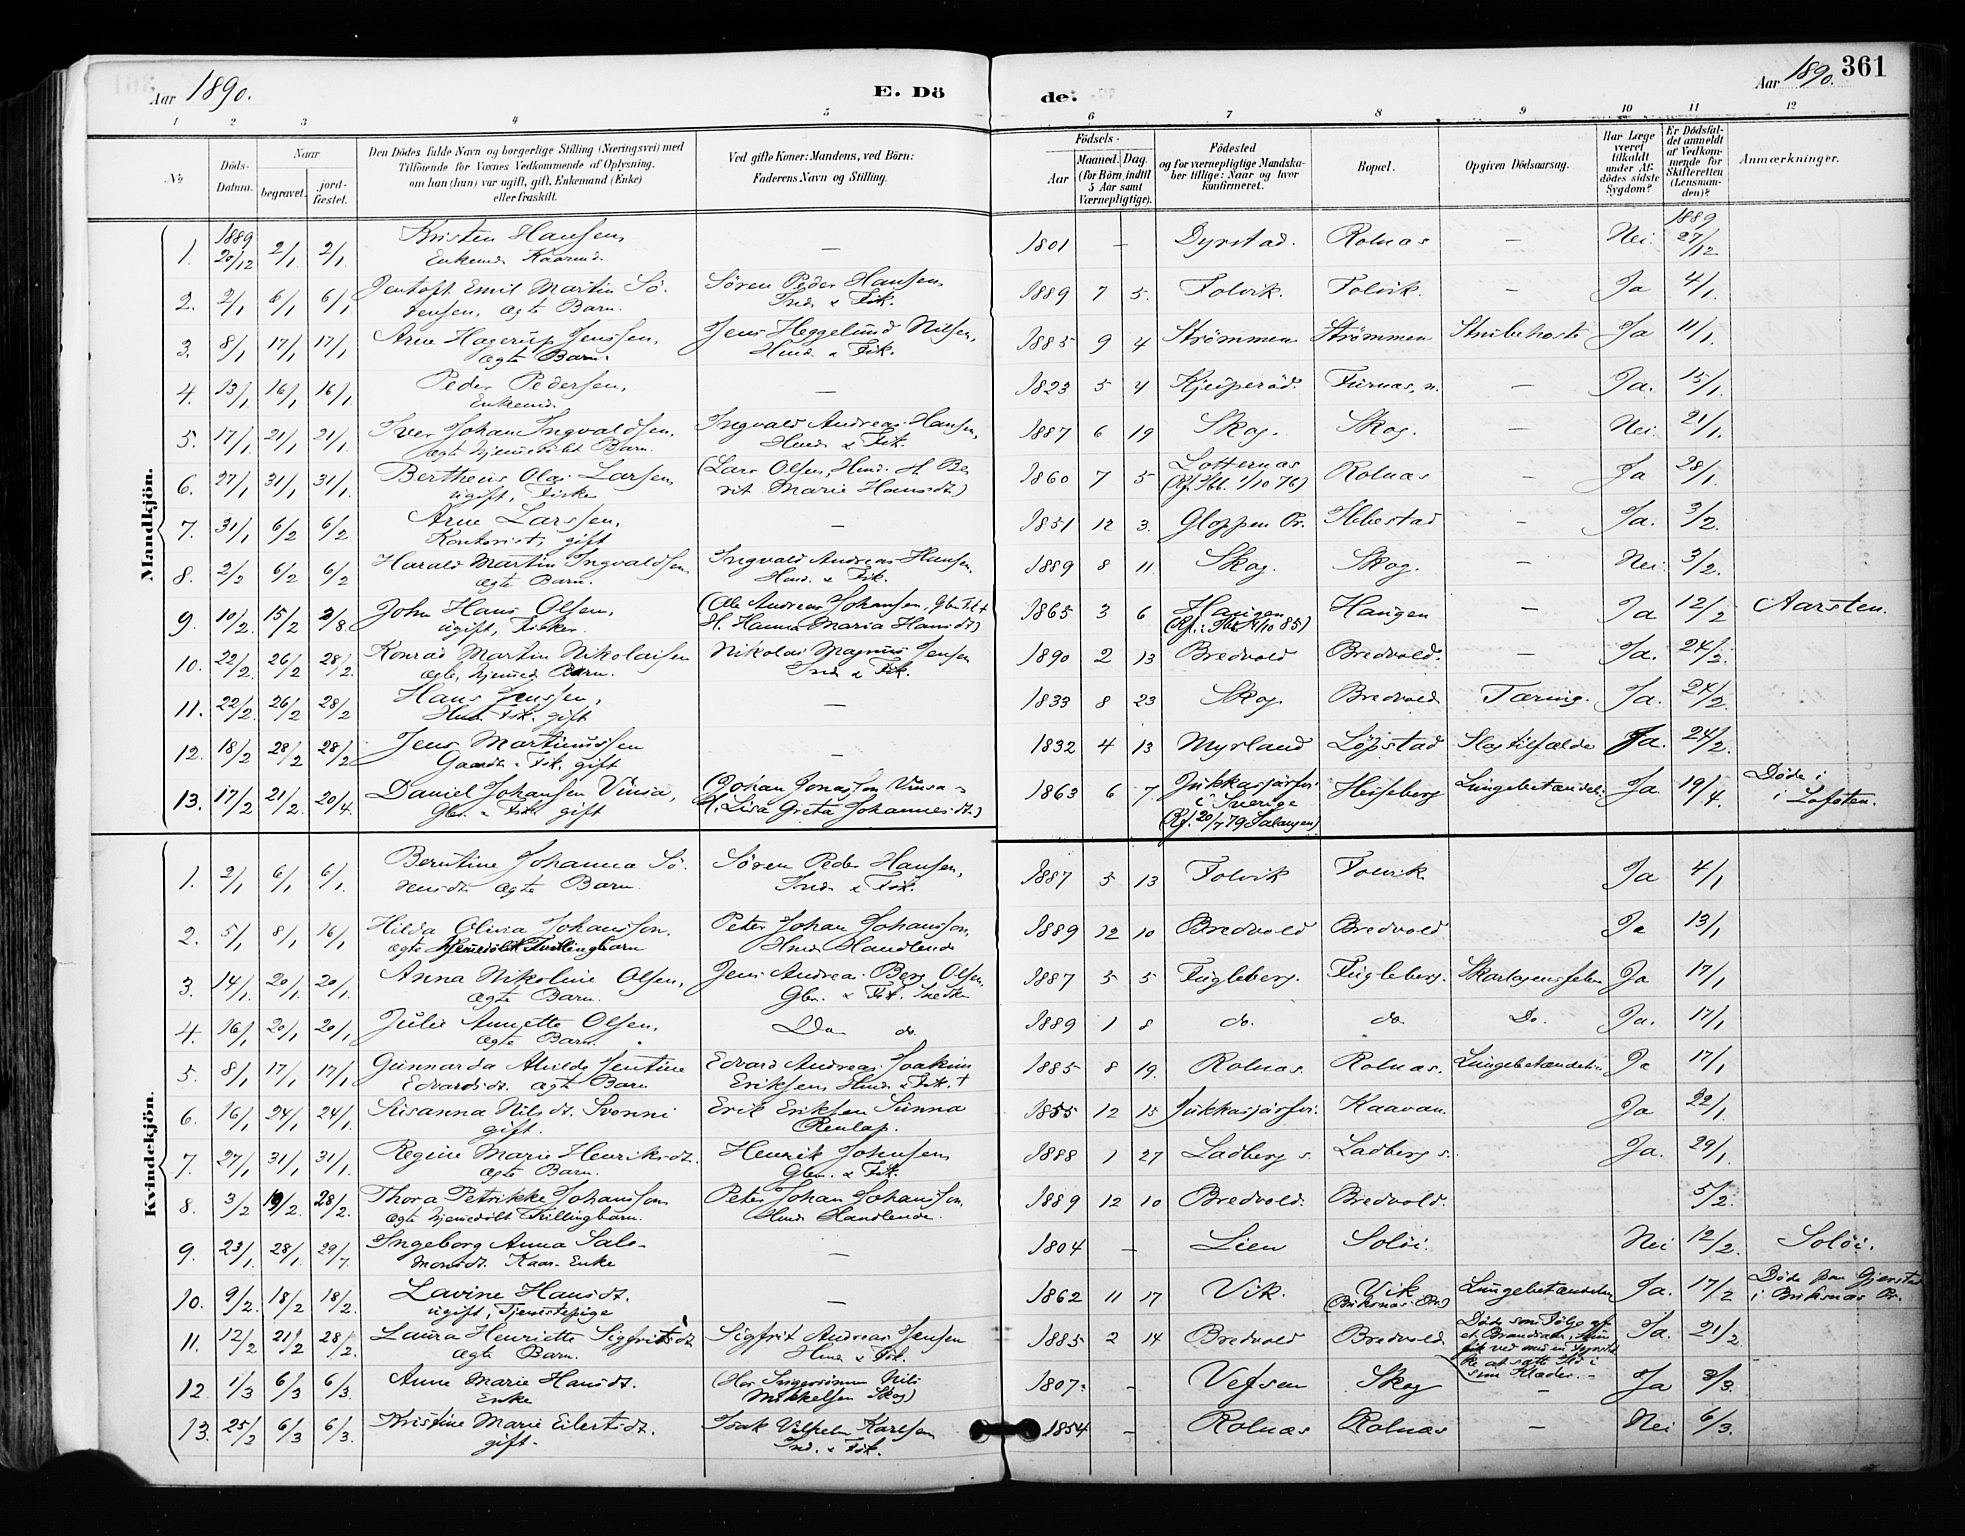 Aar 1890. E. Dö de. Aar 1890. 361
1 2 3 4 5 6 7 8 9 10 11 12
No
Döds-Datum.
Naar
begravet.
jord-fæstet.
Den Dödes fulde Navn og borgerlige Stilling (Næringsvei) med
Tilföiende for Voxnes Vedkommende af Oplysning,
om han (hun) var ugift, gift, Enkemand (Enke)
eller fraskilt.
Ved gifte Koner: Mandens, ved Börn:
Faderens Navn og Stilling.
Födsels-
Aar
Maaned. Dag.
(for Börn indtil
5 Aar samt
Værnepligtige).
Födested
og for værnepligtige Mandska-
ber tillige: Naar og hvor
konfirmeret.
Bopæl.
Opgiven Dödsaarsag.
Har Læge
været
tilkaldt
under Af-
dödes sidste
Sygdom?
Er Dödsfal-
det anmeldt
af Vedkom-
mende for
Skifteretten
(Lensman-
den)?
Anmærkninger.
Mandkjön.
1. 1889 20/12 2/1 2/1. Kristen Hansen, — 1801 — Dyrstad. Rolnæs — Nei. 1889 27/12
Enkemd. Kaarmd.
2. 2/1 6/1 6/1. Jentoft Emil Martin Sö- Sören Peder Hansen, 1889 7 5. Folvik. Folvik. — Ja 4/1.
rensen, ægte Barn. Ind. & Fisk.
3. 8/1 17/1 17/1. Arne Hagerup Jenssen, Jens Heggelund Nilsen, 1885 9 4 Strömmen Strömmen Strubehoste Ja 11/1.
ægte Barn. Hmd. & Fisk.
4. 13/1 16/1 16/1. Peder Pedersen, — 1823 5 4 Kjeiperöd. Furnæs, n. — Ja. 15/1.
Enkemd.
5. 17/1 21/1 21/1. Iver Johan Ingvaldsen, Ingvald Andreas Hansen, 1887 6 19 Skog. Skog. — Nei. 21/1.
ægte hjemedöbt Barn. Hmd. & Fisk.
6. 27/1 31/1 31/1. Bertheus Olai Larsen, (Lars Olsen, Hmd. H. Be- 1860 7 5 Lotternæs Rolnæs — Ja 28/1.
ugift, Fisker rit Marie Hansdt.) (Kf. Ibb. 1/10 76)
7. 31/1 6/2 6/2 Arne Larssen, — 1851 12 3. Gloppen Pr. Ibbestad — Ja. 3/2.
Kontorist, gift
8. 2/2 6/2 6/2 Harald Martin Ingvaldsen, Ingvald Andreas Hansen, 1889 8 11. Skog. Skog. — Nei 3/2.
ægte Barn. Hmd. & Fisk.
9. 10/2. 15/2 3/8. John Hans Olsen, (Ole Andreas Johansen, Gbr. Fisk. & 1865 3 6 Haugen Haugen — Ja 12/2 Aarsten.
ugift, Fisker H. Hanna Maria Hansdt)
10. 22/2. 26/2 28/2. Konrad Martin Nikolaisen Nikolai Magnus Jensen 1890 2 13 Bredvold Bredvold. — Ja. 24/2.
ægte, hjemed. Barn. Ind. & Fisk.
11. 22/2. 26/2 28/2 Hans Jenssen, — 1833 8 23 Skog Bredvold Tæring. Ja. 24/2.
Hmd. Fisk. gift
12. 18/2 28/2 28/2 Jens Martinussen — 1832 4 13 Myrland Löpstad Slagtilfælde Ja. 24/2.
Gaardb. & Fisk. gift
13. 17/2 21/2. 20/4. Daniel Johansen Vinsa, (Johan Jonasson Vinsa & 1863 6 7 Jukkasjärfvi Heiseberg Lungebetændels. Ja 19/4. Döde i
Gbr. & Fisk. gift H. Lisa Greta Johannesdt.) i Sverige i Lofoten.
(Kf. 20/7 79 Salangen)
Kvindekjön.
1. 2/1 6/1 6/1. Berntine Johanna Sö- Sören Peder Hansen, 1887 5 13 Folvik Folvik Ja 4/1
rensdt. ægte Barn Ind. & Fisk.
2. 5/1 8/1 16/1 Hilda Olivia Johansson, Peter Johan Johansson, 1889 12 10 Bredvold Bredvold Ja 13/1
ægte hjemedöbt Tvillingbarn Hmd. Handlende
3. 14/1 20/1 20/1 Anna Nikoline Olsen, Jens Andreas Berg Olsen, 1887 5 5 Fugleberg. Fugleberg. Skarlagensfeber Ja 17/1
ægte Barn. Gbr. & Fisk. Snedker
4. 16/1 20/1 20/1. Julie Annette Olsen, Do do. 1889 1 8 do. do. Do. Ja. 17/1
ægte Barn.
5. 8/1 17/1 17/1. Gunnarda Alvilde Jentine Edvard Andreas Joakim 1885 8 19. Rolnæs. Rolnæs. Lungebetændelse Ja 17/1
Edvardsdt. ægte Barn Eriksen, Hmd. & Fisk. †
6. 16/1 24/1 24/1. Susanna Nilsdt. Svonni Erik Eriksen Sunna 1855 12 15 Jukkasjärfvi. Kaavan Ja 22/1
gift. Renlap.
7. 27/1 31/1 31/1. Regine Marie Henriksdt. Henrik Johnsen 1888 1 27 Ladberg s. Ladberg s. Ja. 29/1.
ægte Barn. Gbr. & Fisk.
8. 3/2 19/2. 28/2. Thora Petrikke Johansson Peter Johan Johansson, 1889 12 10 Bredvold. Bredvold. 5/2.
ægte hjemedöbt Tvillingbarn. Hmd. Handlende.
9. 23/1. 28/1 29/7. Ingeborg Anna Salo- — 1804 — Lien Solöi. Nei 12/2. Solöi.
monsdt. Kaar-Enke
10. 9/2. 18/2 18/2. Lavine Hansdt. — 1862 11 17 Vik. Vik Lungebetændelse Ja. 17/2 Döde paa Gjerstad
ugift, Tjenestepige (Buksnæs Pr.) i Buksnæs Pr.
11. 12/2 21/2 28/2. Laura Henriette Sigfritsdt Sigfrit Andreas Jensen 1885 2 14 Bredvold Bredvold Döde som Fölge af Ja. 21/2
ægte Barn. Hmd. & Fisk. et Brandsaar,
12. 1/3 6/3 6/3. Anne Marie Hansdt. (Hos Svigersönnen Nils 1807. — Vefsen Skog — Ja 3/3.
Enke Mikkelsen Skog)
13. 25/2 6/3 6/3. Kristine Marie Eilertsdt. Isak Vilhelm Karlsen 1854 — Rolnæs Rolnæs — Nei 6/3.
gift- Ind. & Fisk.